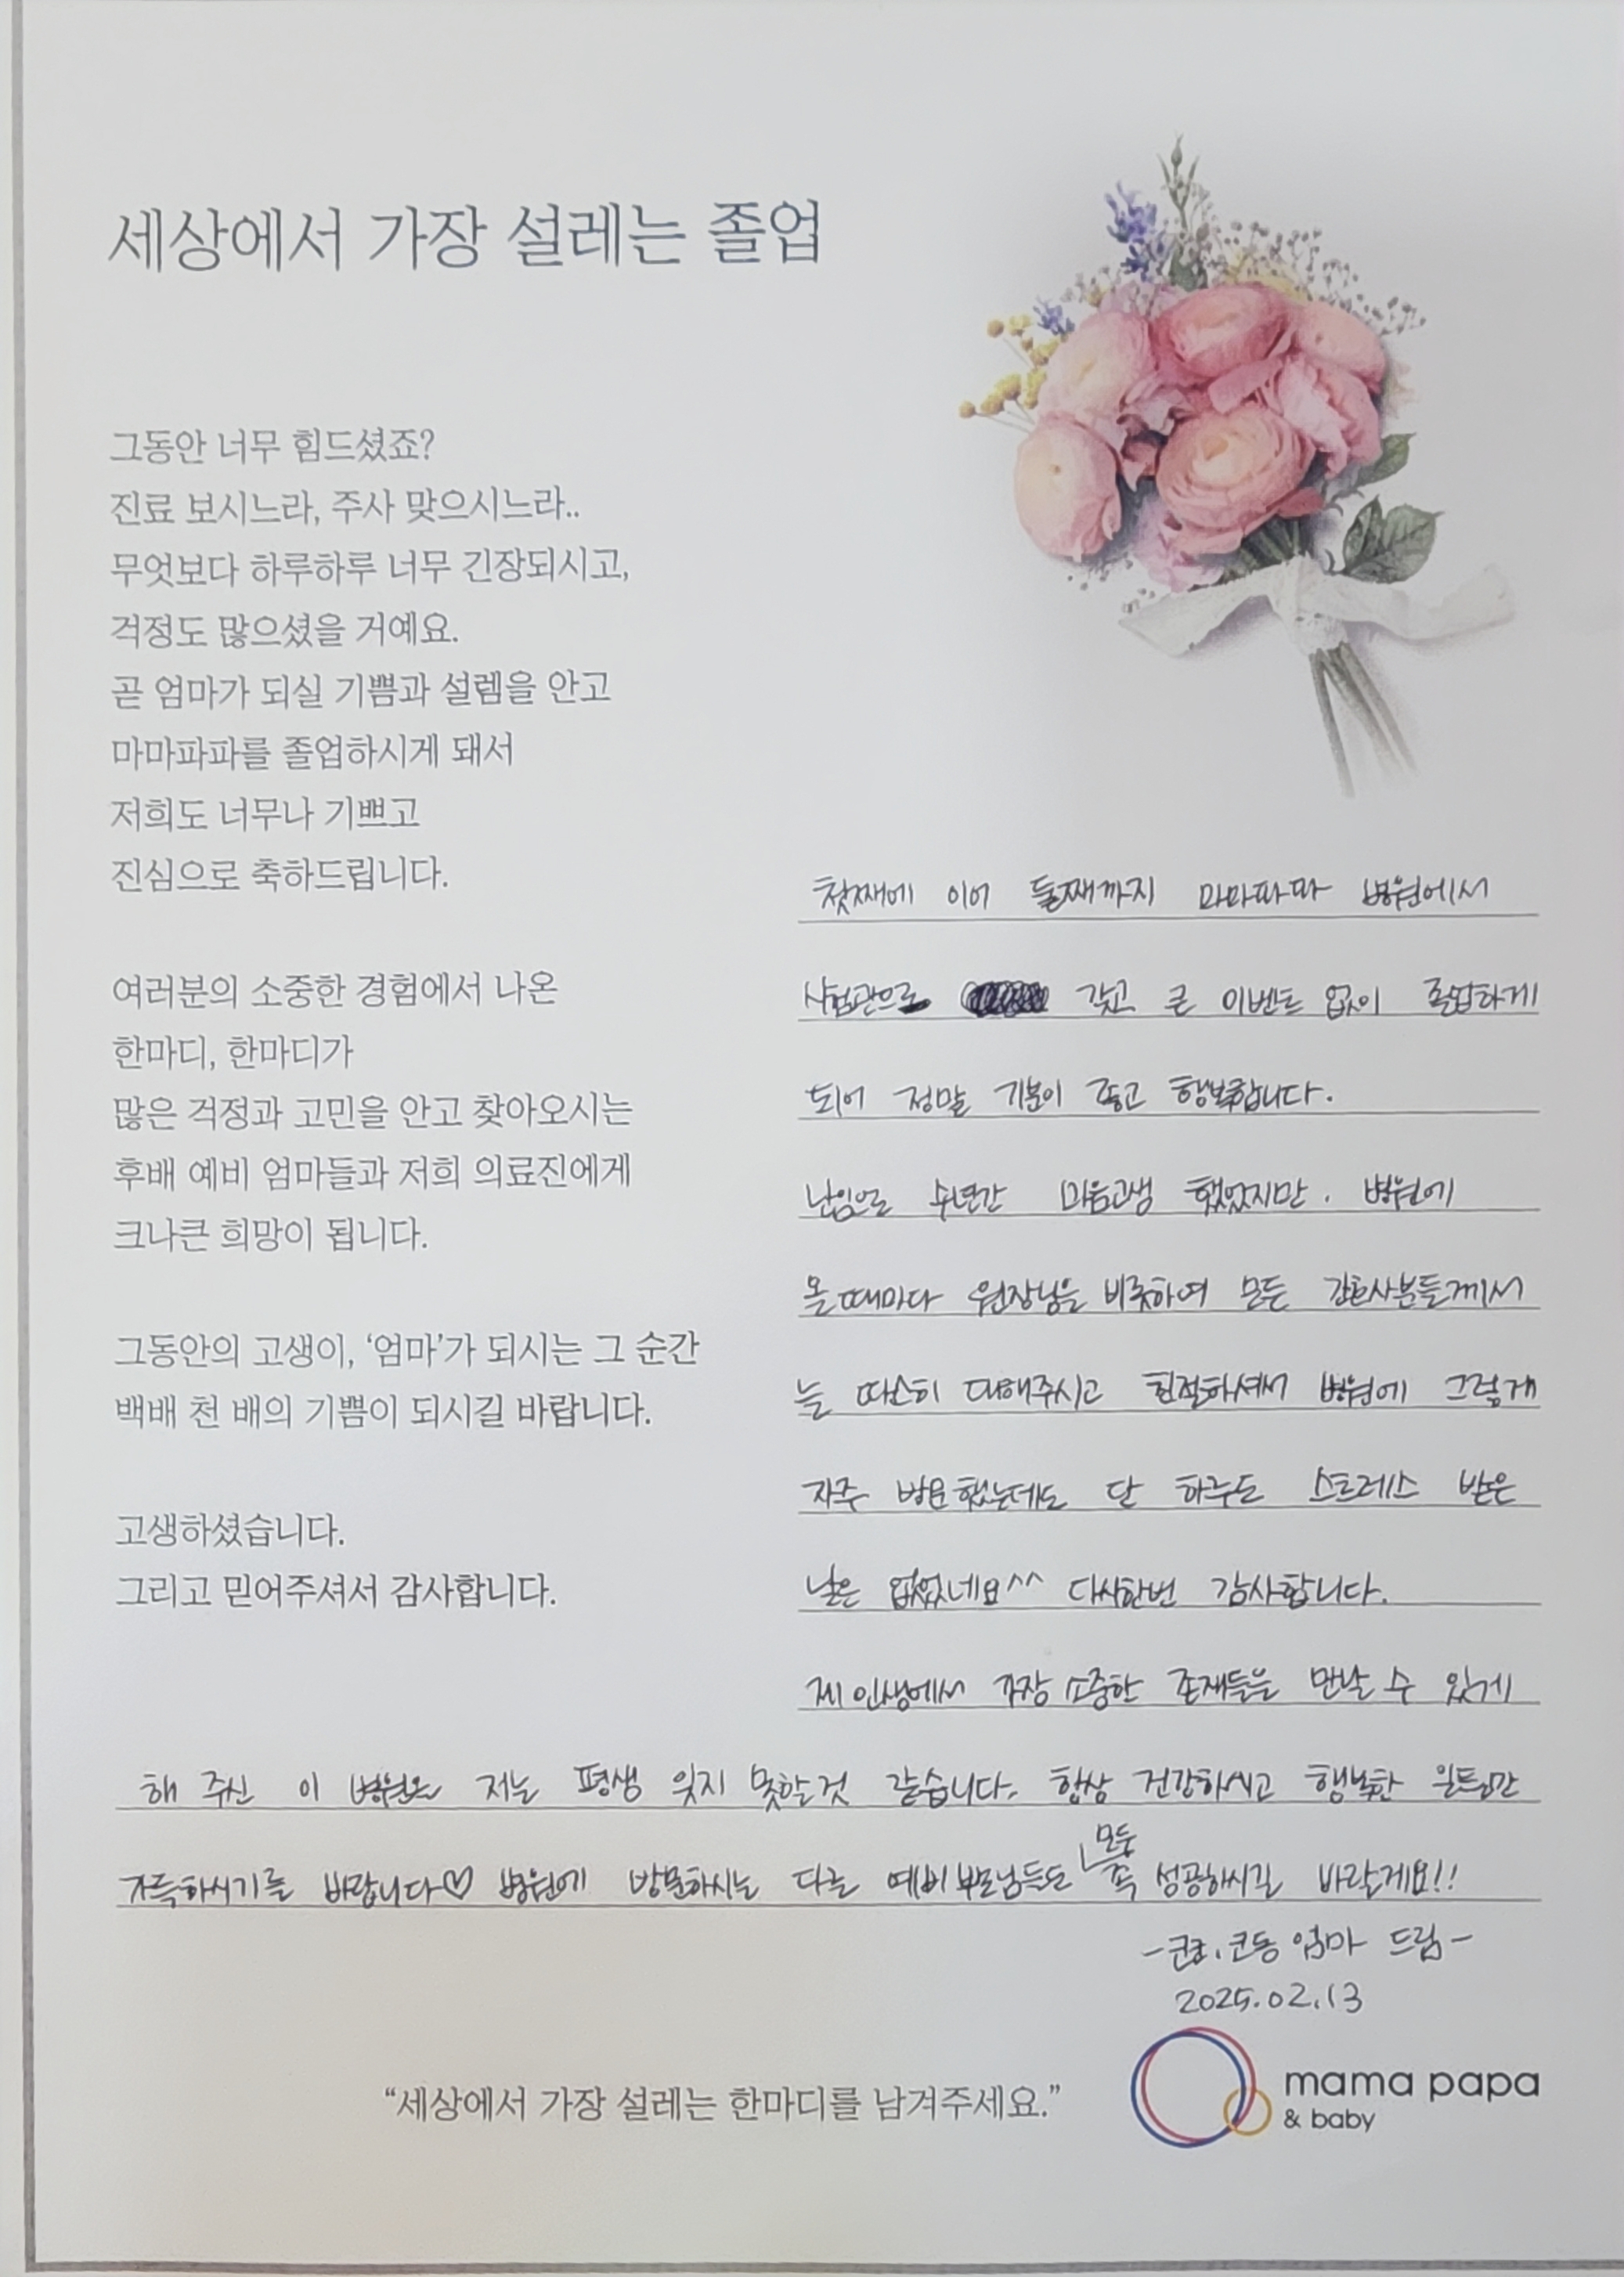 세상에서 가장 설레는 졸업
그동안 너무 힘드셨죠?
진료 보시느라, 주사 맞으시느라..
무엇보다 하루하루 너무 긴장되시고,
걱정도 많으셨을 거예요.
곧 엄마가 되실 기쁨과 설렘을 안고
마마파파를 졸업하시게 돼서
저희도 너무나 기쁘고
진심으로 축하드립니다.
여러분의 소중한 경험에서 나온
한마디, 한마디가
많은 걱정과 고민을 안고 찾아오시는
후배 예비 엄마들과 저희 의료진에게
크나큰 희망이 됩니다.
그동안의 고생이, ‘엄마’가 되시는 그 순간
백배 천 배의 기쁨이 되시길 바랍니다.
고생하셨습니다.
그리고 믿어주셔서 감사합니다.
첫째에 이어 둘째까지 마마파파 병원에서
시험관으로 갖고 큰 이벤트 없이 졸업하게
되어 정말 기분이 좋고 행복합니다.
난임으로 수년간 마음고생 했었지만. 병원에
올 때마다 원장님을 비롯하여 모든 간호사분들께서
늘 따스히 대해주시고 친절하셔서 병원에 그렇게
자주 방문했는데도 단 하루도 스트레스 받은
날은 없었네요^^ 다시한번 감사합니다.
제 인생에서 가장 소중한 존재들을 만날 수 있게
해 주신 이 병원은 저는 평생 잊지 못할것 같습니다. 항상 건강하시고 행복한 일들만
가득하시기를 바랍니다♡ 병원에 방문하시는 다른 예비 부모님들도 모두 꼭 성공하시길 바랄게요!!
코동 엄마 드림-
2025.02.13
“세상에서 가장 설레는 한마디를 남겨주세요.”
mama papa
& baby